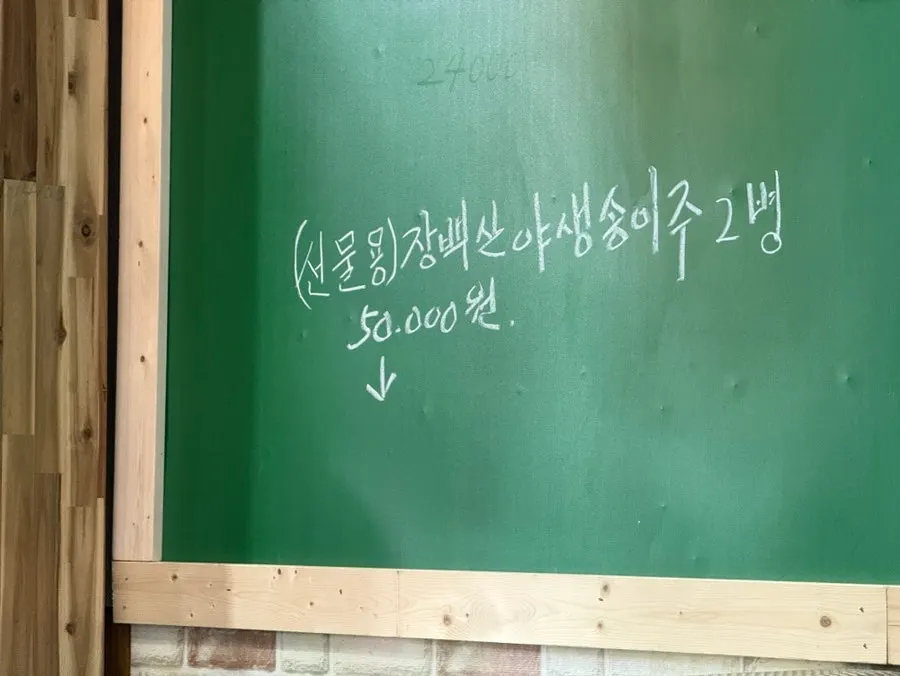 24000
(선물용)장백산야생송이주 2병
50.000원.
↓